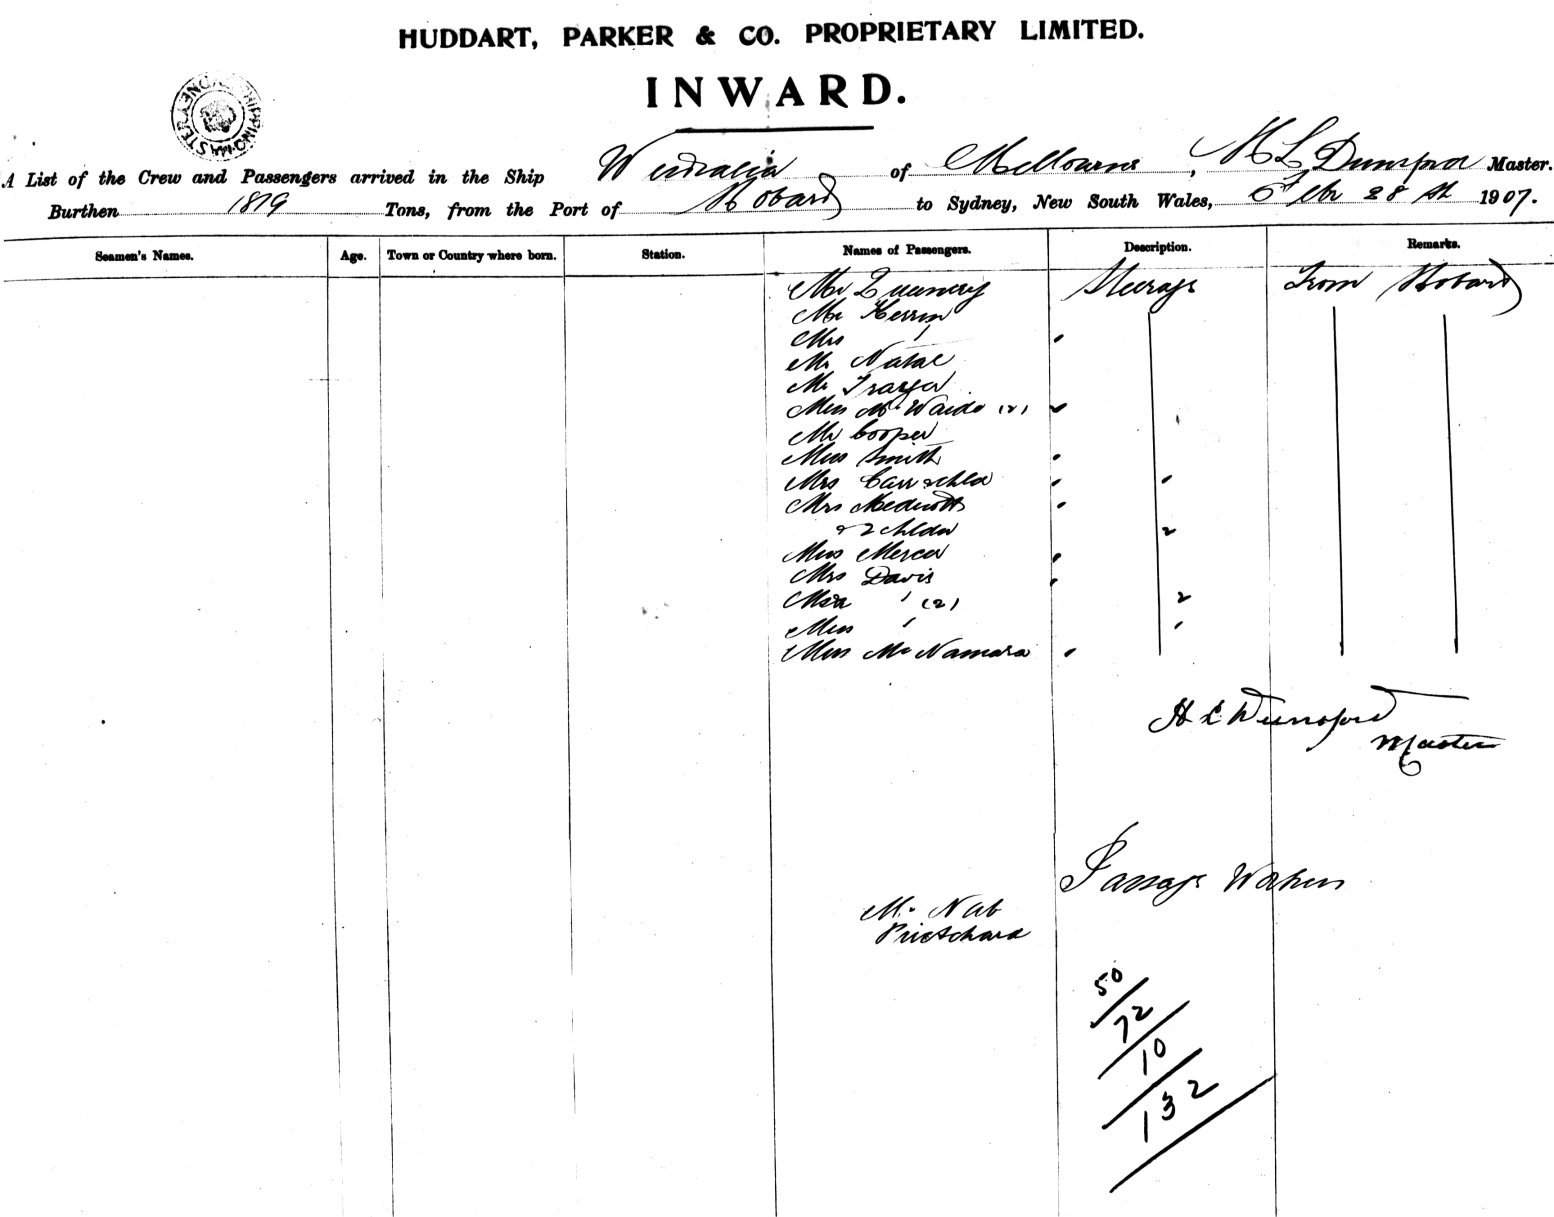 HUDDART, PARKER & CO. PROPRIETARY LIMITED.
INWARD.
SHIPPING MASTER SYDNEY
A List of the Crew and Passengers arrived in the Ship Westralia of Melbourne, H L Dunsford Master.
Burthen 1819 Tons, from the Port of Hobart to Sydney, New South Wales, Feb 28 th 1907.
Seamen's Names. Age. Town or Country where born. Station. Names of Passengers. Description. Remarks.
Mr Steerage From Hobart
Mr Herrin
Mrs "
Mr Natal
Mr
Miss Mc Waide (2)
Mr Cooper
Miss Smith
Mrs Carr & chld
Mrs Medwott
& 2 chldn 2
Miss Mercer
Mrs Davis
" (2) 2
Miss "
Miss McNamara
H L Dunsford
Master
Passage Workers
Mr
Pritchard
50
72
10
132